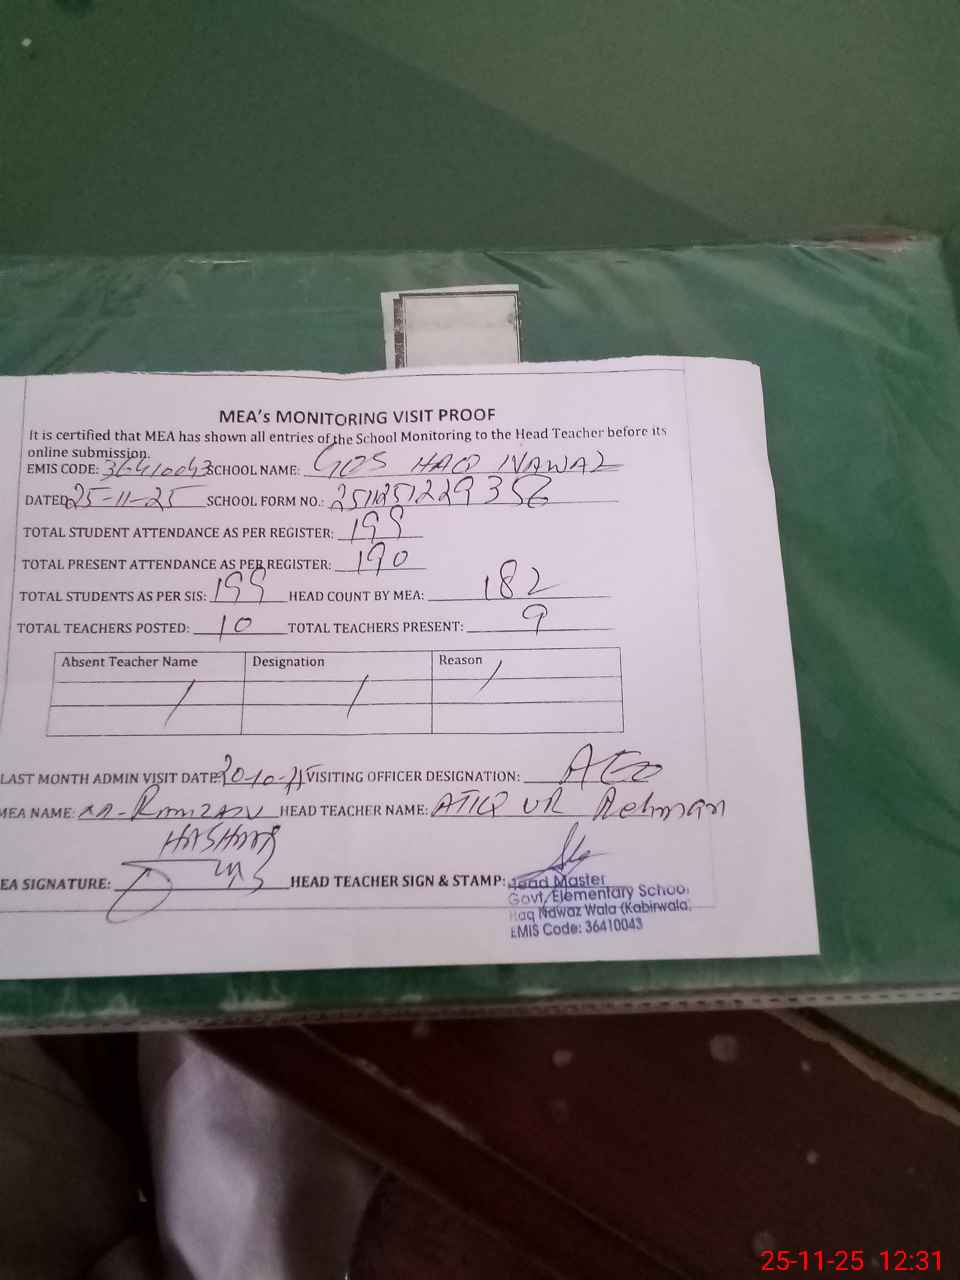 MEA's MONITORING VISIT PROOF
It is certified that MEA has shown all entries of the School Monitoring to the Head Teacher before its
online submission.
EMIS CODE: 36410043 SCHOOL NAME: HAQ NAWAZ
DATED 25-11-25 SCHOOL FORM NO.:
TOTAL STUDENT ATTENDANCE AS PER REGISTER: 199
TOTAL PRESENT ATTENDANCE AS PER REGISTER: 190
TOTAL STUDENTS AS PER SIS: 199 HEAD COUNT BY MEA: 182
TOTAL TEACHERS POSTED: 10 TOTAL TEACHERS PRESENT: 9
Absent Teacher Name Designation Reason
LAST MONTH ADMIN VISIT DATE: VISITING OFFICER DESIGNATION: AEO
MEA NAME: HEAD TEACHER NAME: ATIQ UR Rehman
EA SIGNATURE: HEAD TEACHER SIGN & STAMP:
Head Master
Govt. Elementary School
Haq Nawaz Wala (Kabirwala)
EMIS Code: 36410043
25-11-25 12:31